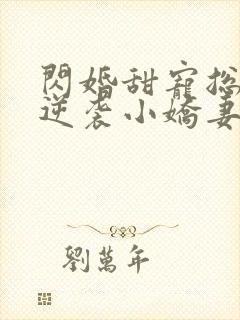 閃婚甜寵總
逆袭小嬌妻
劉萬年